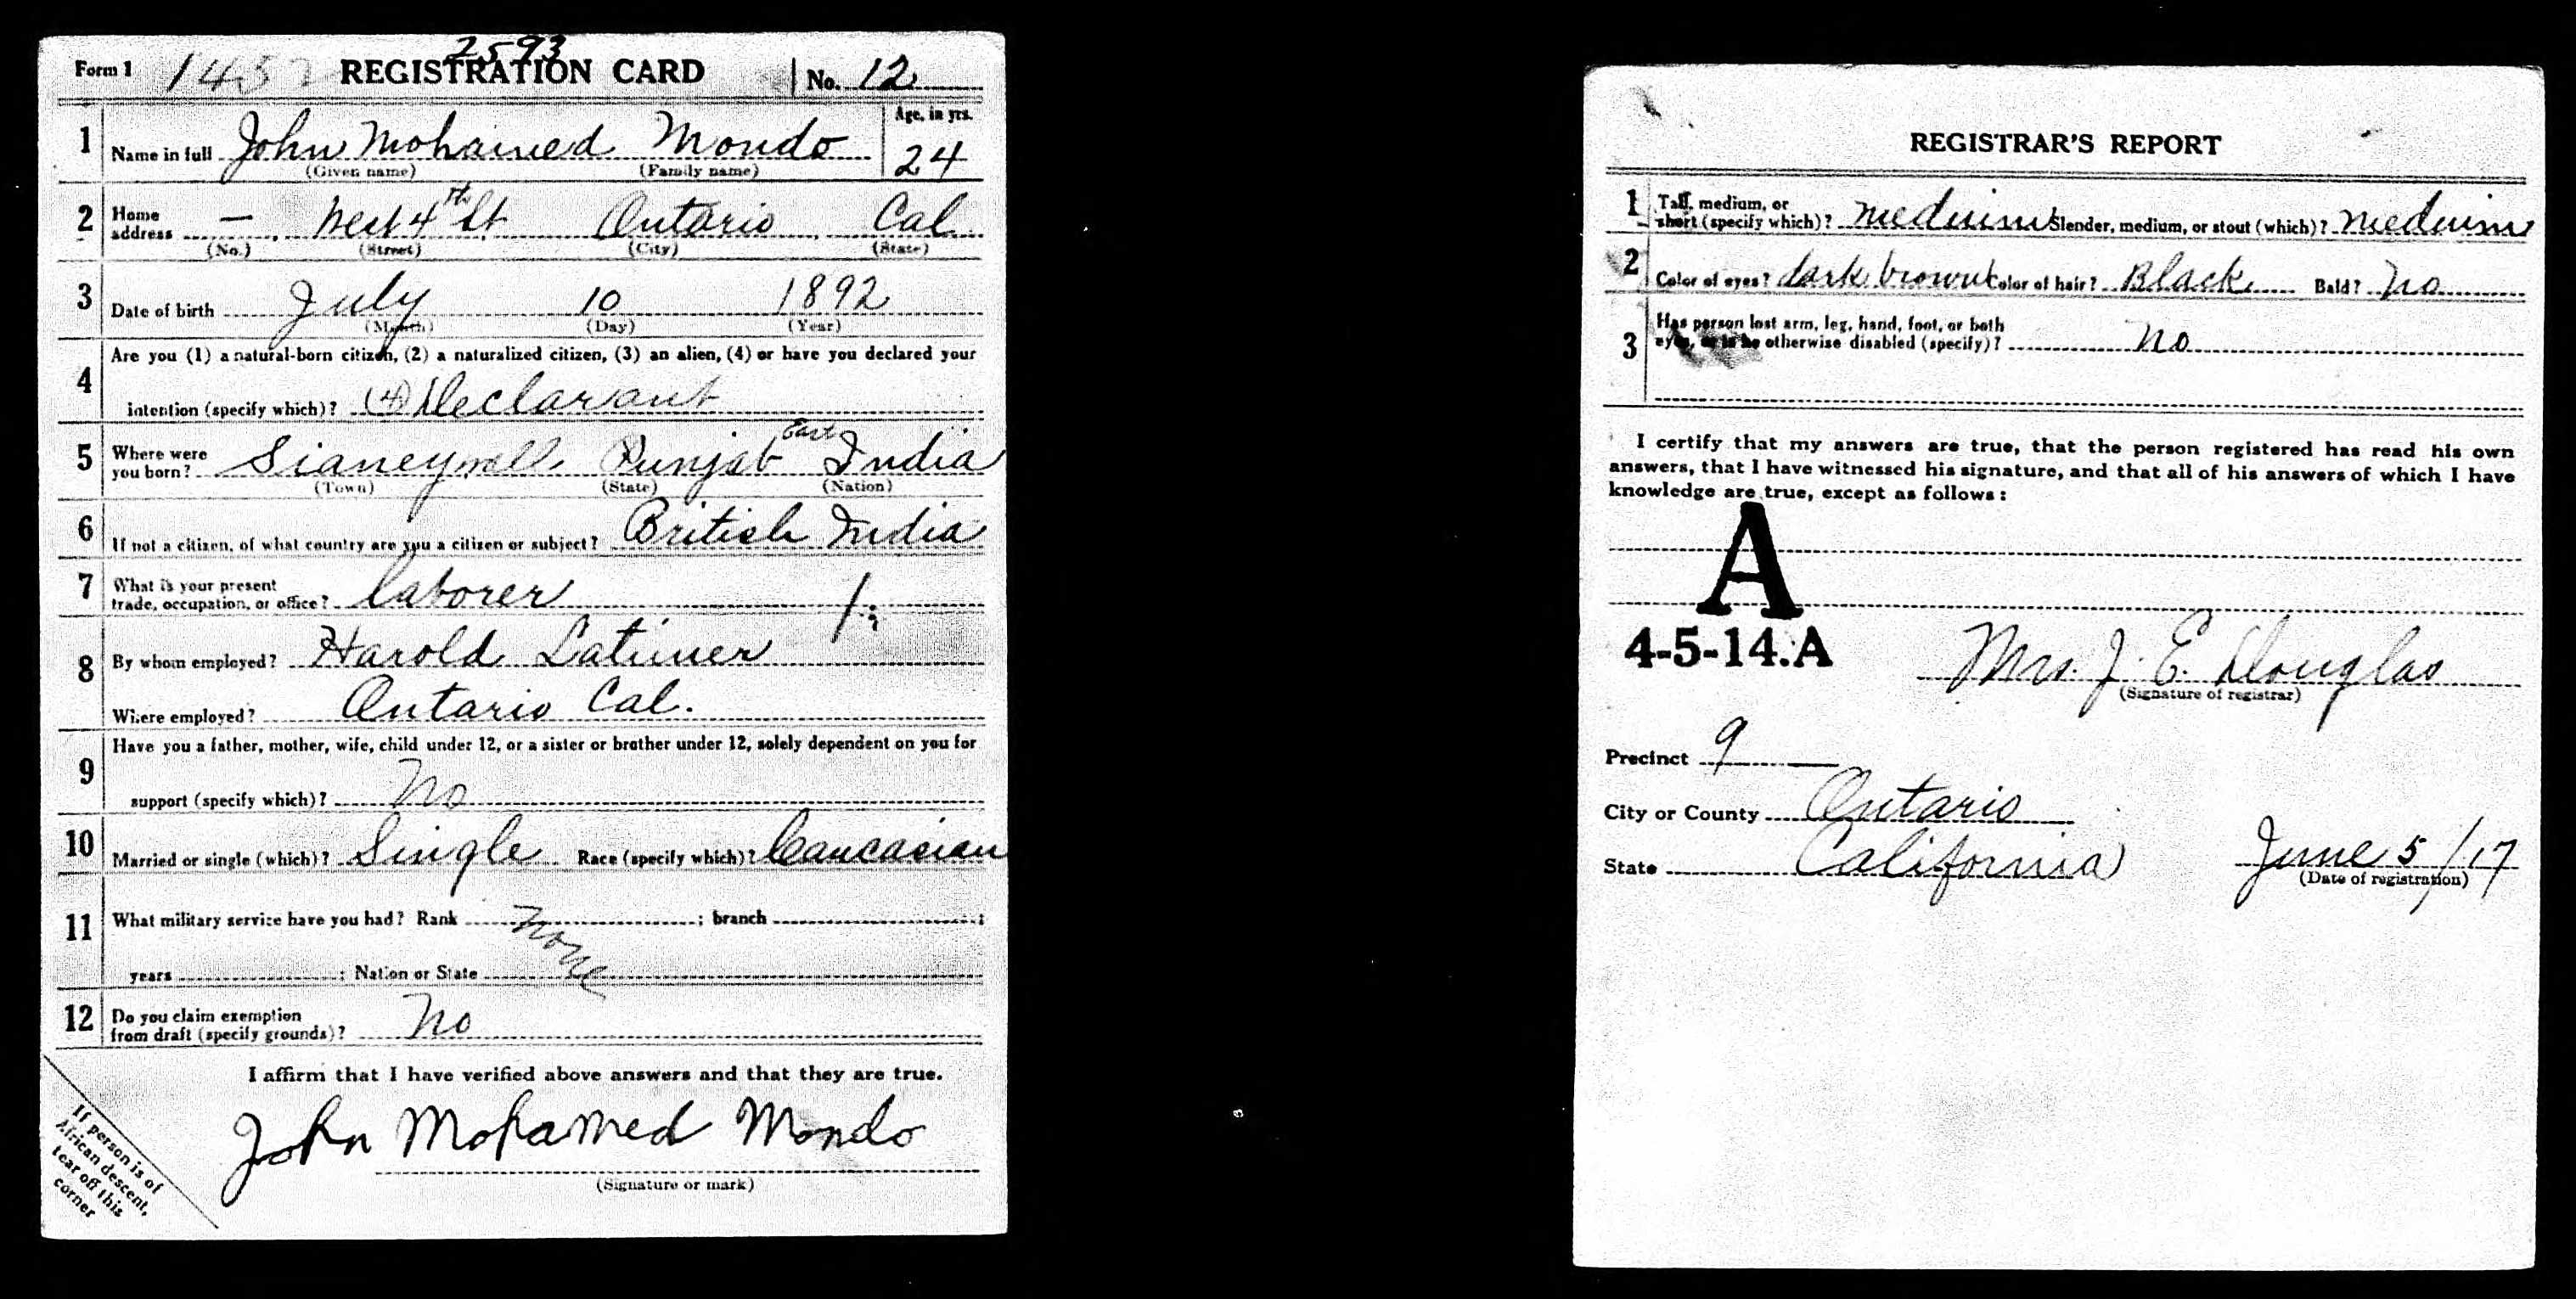 2593
Form 1 1452 REGISTRATION CARD No. 12
1 Name in full John Mohamed Mondo Age, in yrs. 24
(Given name) (Family name)
2 Home address — West 4th St Ontario Cal
(No.) (Street) (City) (State)
3 Date of birth July 10 1892
(Month) (Day) (Year)
Are you (1) a natural-born citizen, (2) a naturalized citizen, (3) an alien, (4) or have you declared your
4 intention (specify which)? (4) Declarant
5 Where were you born? Punjab East India
(Town) (State) (Nation)
6 If not a citizen, of what country are you a citizen or subject? British India
7 What is your present trade, occupation, or office? laborer
8 By whom employed? Harold Latimer
Where employed? Ontario Cal.
Have you a father, mother, wife, child under 12, or a sister or brother under 12, solely dependent on you for
9 support (specify which)? No
10 Married or single (which)? Single Race (specify which)? Caucasian
11 What military service have you had? Rank None ; branch ;
years ; Nation or State
12 Do you claim exemption from draft (specify grounds)? No
I affirm that I have verified above answers and that they are true.
John Mohamed Mondo
(Signature or mark)
If person is of
African descent,
tear off this
corner
REGISTRAR'S REPORT
1 Tall, medium, or short (specify which)? medium Slender, medium, or stout (which)? medium
2 Color of eyes? dark brown Color of hair? Black Bald? No
3 Has person lost arm, leg, hand, foot, or both
eyes, or is he otherwise disabled (specify)? No
I certify that my answers are true, that the person registered has read his own
answers, that I have witnessed his signature, and that all of his answers of which I have
knowledge are true, except as follows:
A
4-5-14.A
Mrs. J. E. Douglas
(Signature of registrar)
Precinct 9
City or County Ontario
State California June 5/17
(Date of registration)